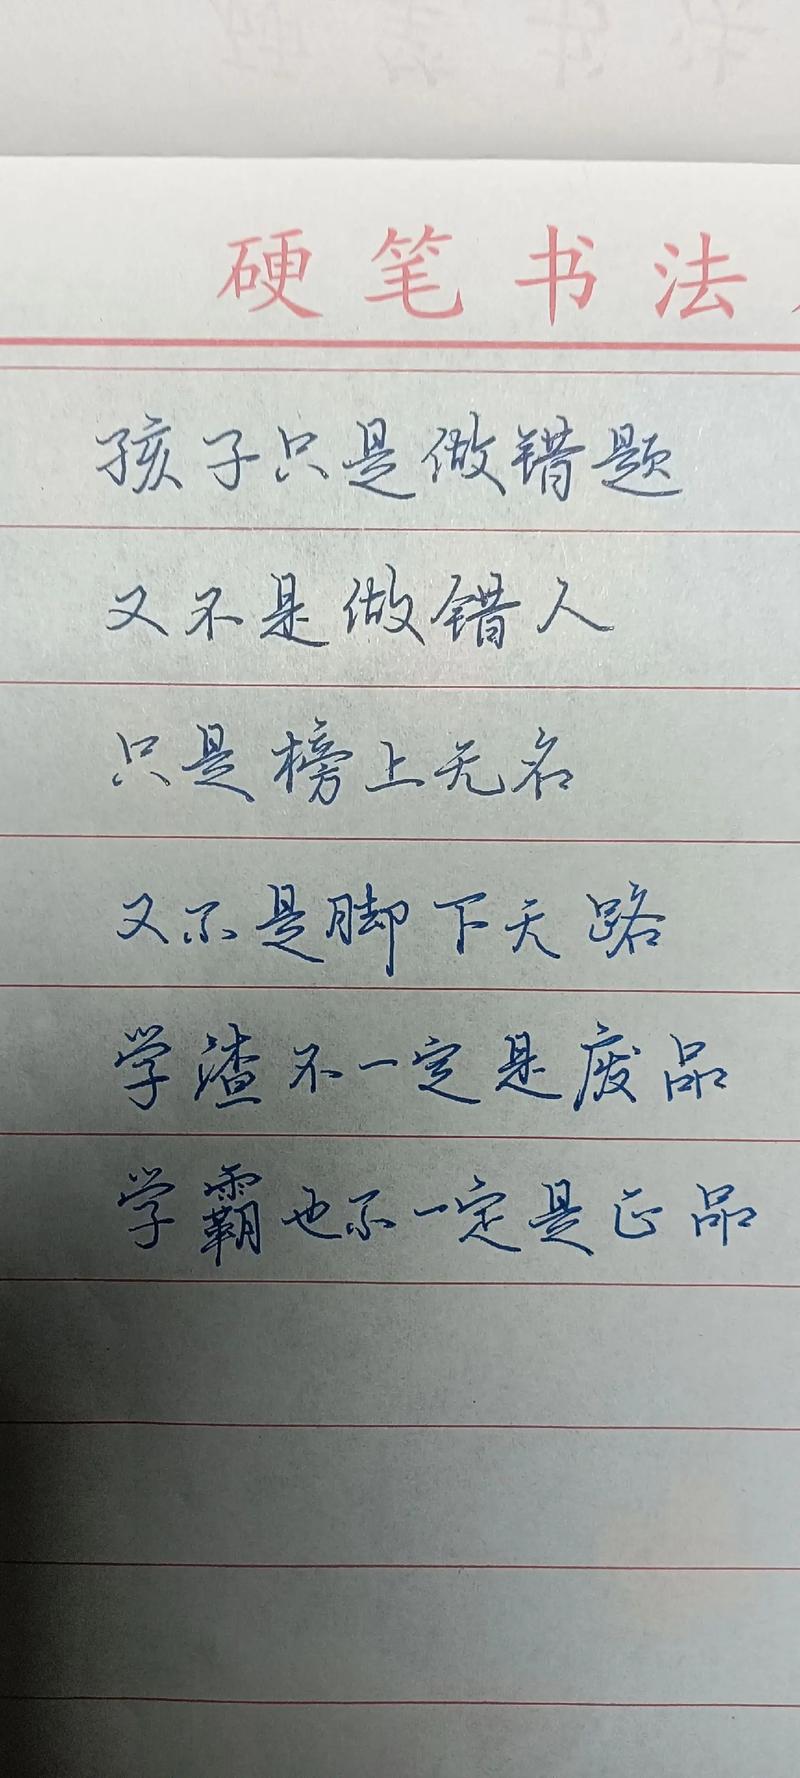 硬笔书法
孩子只是做错题
又不是做错人
只是榜上无名
又不是脚下无路
学渣不一定是废品
学霸也不一定是正品